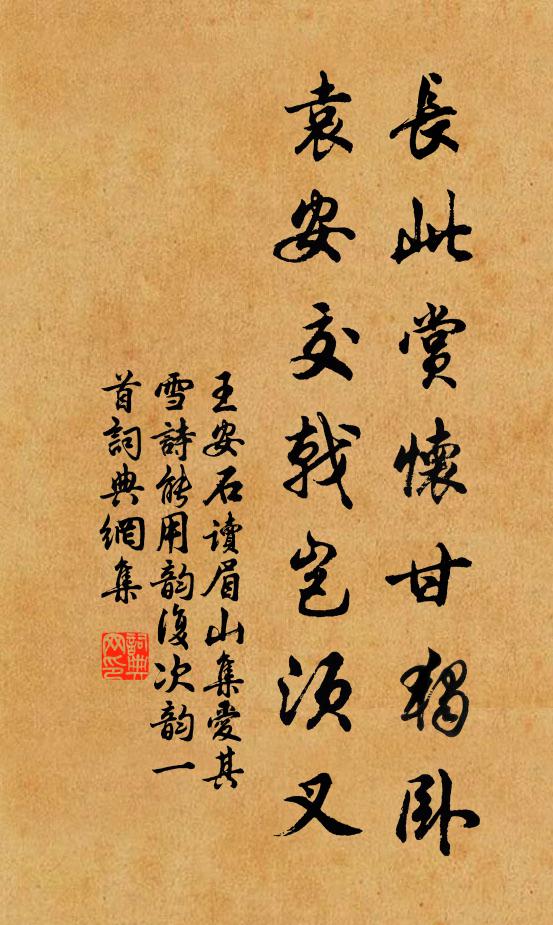 長此賞懷甘獨臥
袁安交戟豈須叉
王安石讀眉山集愛其
雪詩能用韵復次韵一
首詞典網集
詞典网印